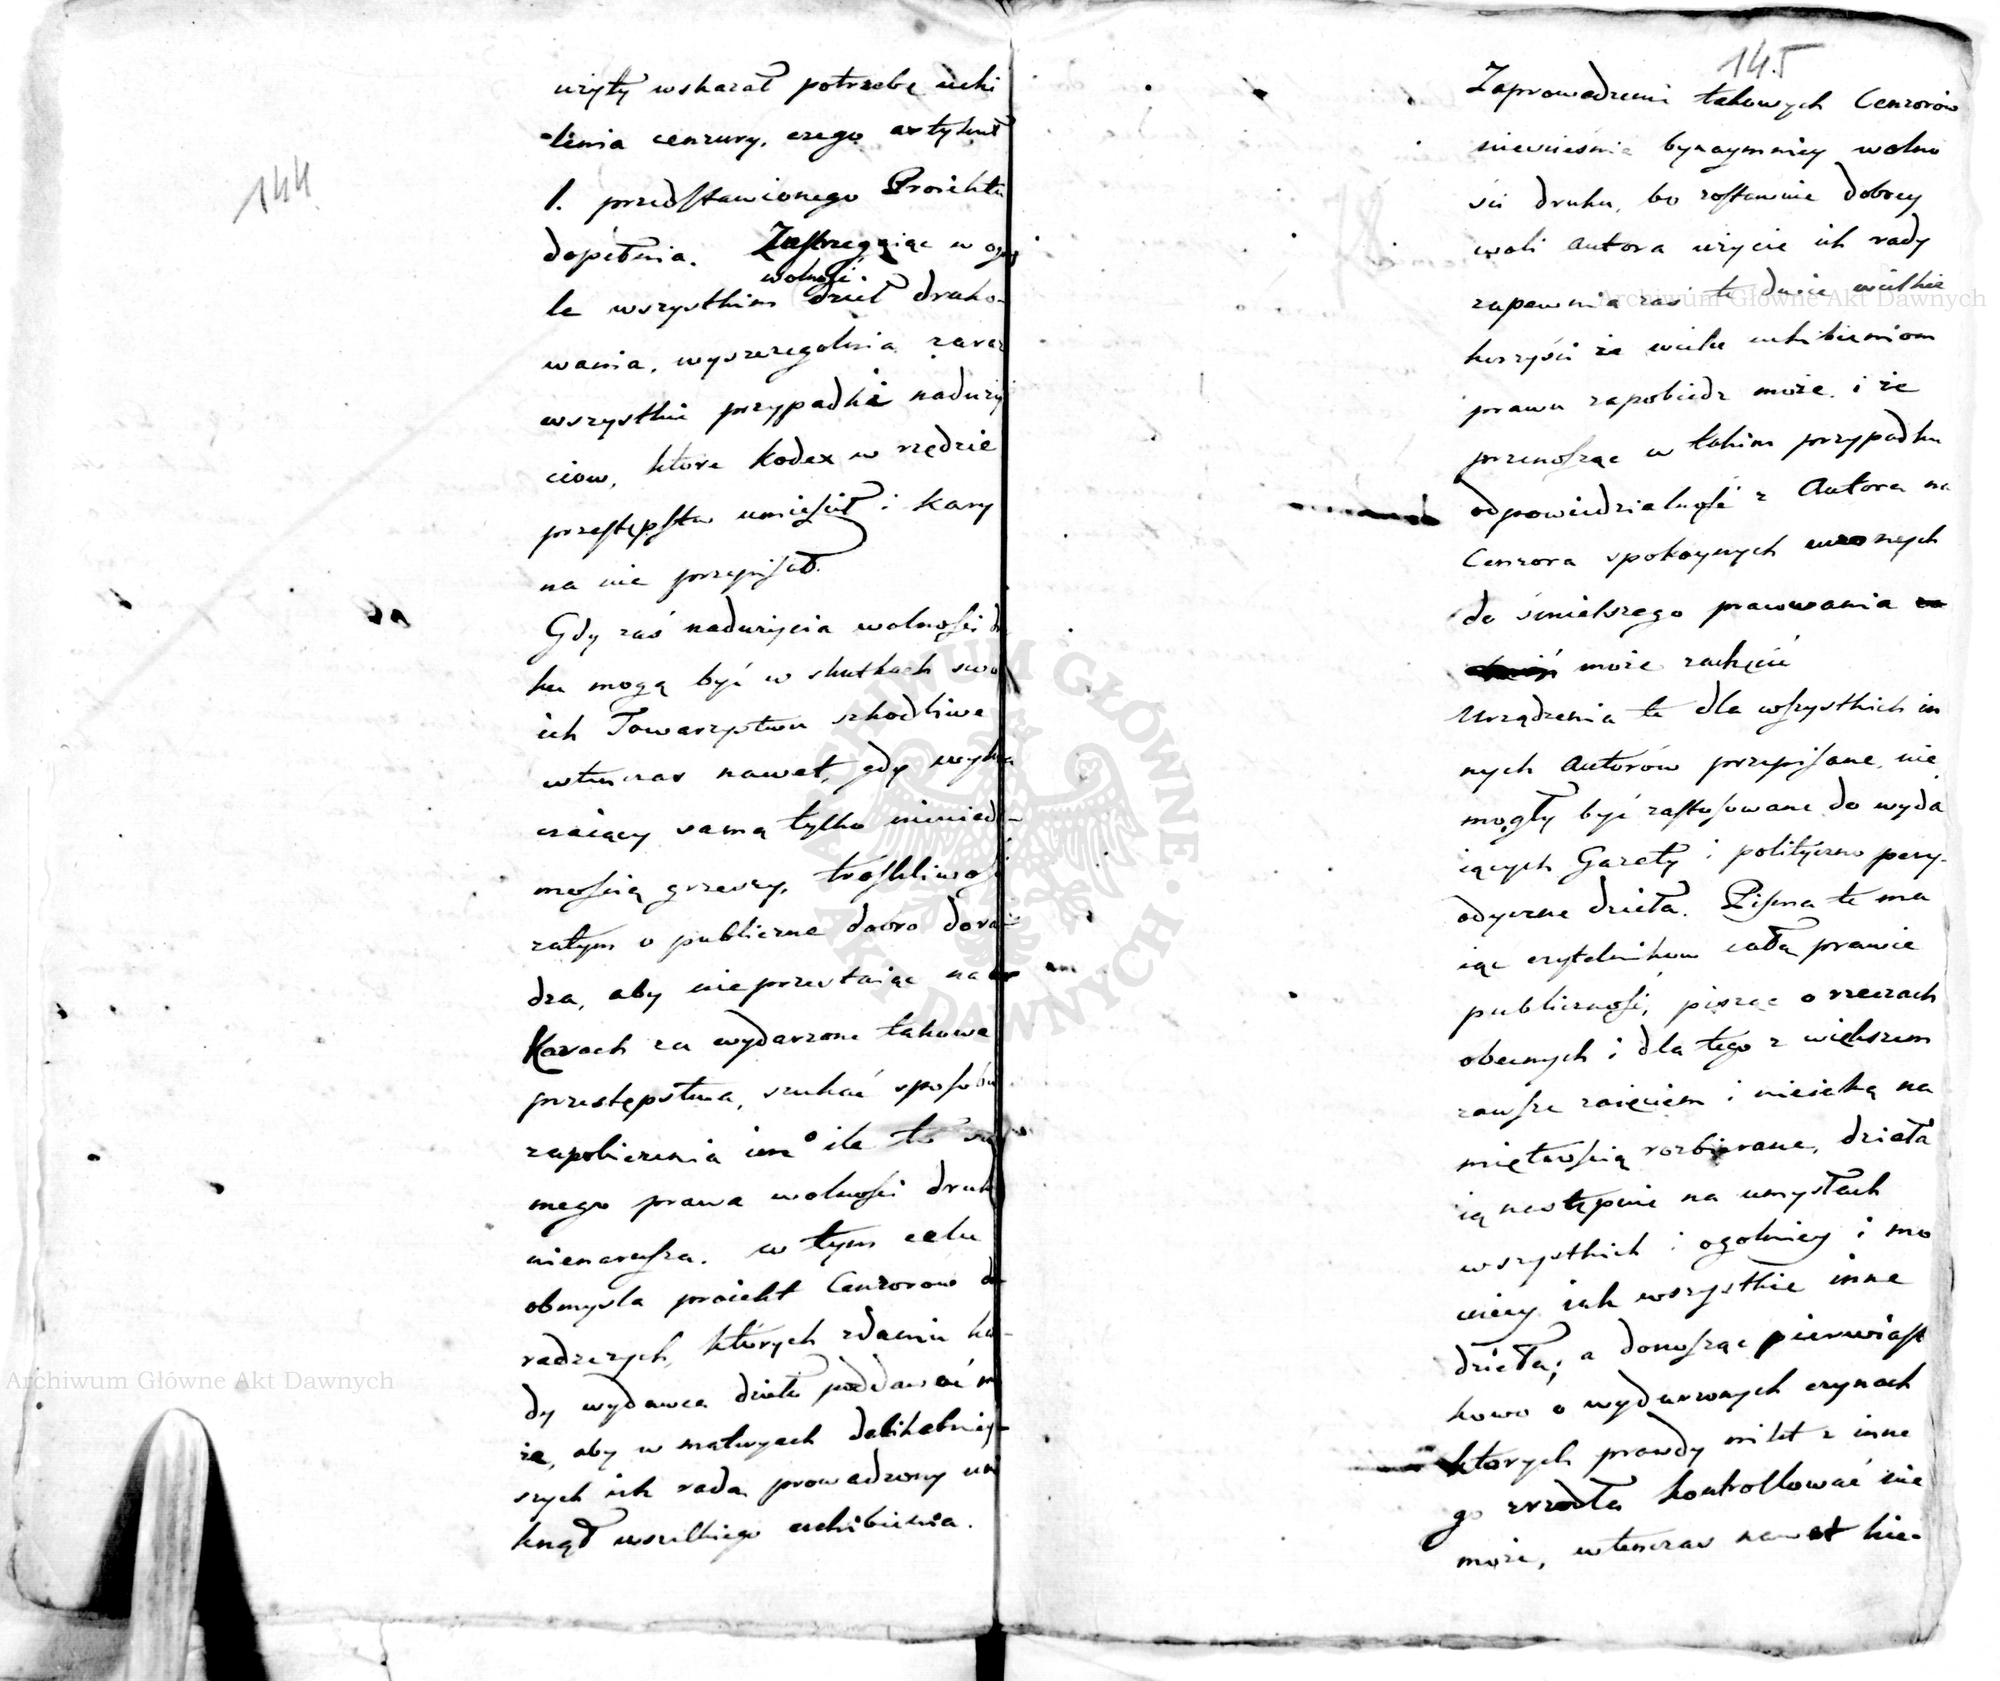 144
użyty wskazał potrzebę uchi
lenia cenzury, czego artykuł
1. przedstawionego Proiektu
dopełnia. Zastrzegaiąc w ogu
wolność
le wszystkim dzieł druko-
wania, wyszczegolnia zaraz
wszystkie przypadki naduży
ciow, ktore Kodex w rzędzie
przestępstw umieścił i kary
na nie przepisał.
Gdy zaś nadużycia wolności dru
ku mogą być w skutkach swo
ich Towarzystwu szkodliwe
wtenczas nawet, gdy wykra
czaiący samą tylko niewiado-
mością grzeszy, troskliwość
zatym o publiczne dobro dora-
dza, aby nieprzestaiąc na
Karach za wydarzone takowe
przestępstwa, szukać sposobu
zapobieżenia im ile to sa
mego prawa wolności druku
nienarusza. w tym celu
obmyśla proiekt Cenzorow do-
radczych, których zdaniu ka-
żdy wydawca dzieło poddawać mo
że, aby w materyach delikatniey-
szych ich radą prowadzony uni
knął wszelkiego uchibienia.
145
Zaprowadzenie takowych Cenzorów
niezniesie bynaymniey wolno
ści druku, bo zostawuie dobrey
woli Autora użycie ich rady
zapewnia zaś te dwie wielkie
korzyści że wielu uchibieniom
prawa zapobiedz może i że
przenosząc w takim przypadku
odpowiedzialność z Autora na
Cenzora spokoynych uczonych
do śmielszego pracowania
może zachęcić
Urządzenia te dla wszystkich in
nych Autorów przepisane, nie
mogły być zastosowane do wyda
iących Gazety i polityczno pery-
odyczne dzieła. Pisma te ma
iąc czytelnikow całą prawie
publiczność, pisząc o rzeczach
obecnych i dla tego z większem
zawsze zaięciem i nieiaką na
miętnością rozbierane, działa
ią następnie na umysłach
wszystkich i ogolniey i mo
cniey iak wszystkie inne
dzieła; a donosząc pierwiast
kowo o wydarzonych czynach
ktorych prawdy nikt z inne
go zrzodła kontrollować nie
może, wtenczas nawet kie-
Archiwum Główne Akt Dawnych
Archiwum Główne Akt Dawnych
ARCHIWUM GŁÓWNE AKT DAWNYCH